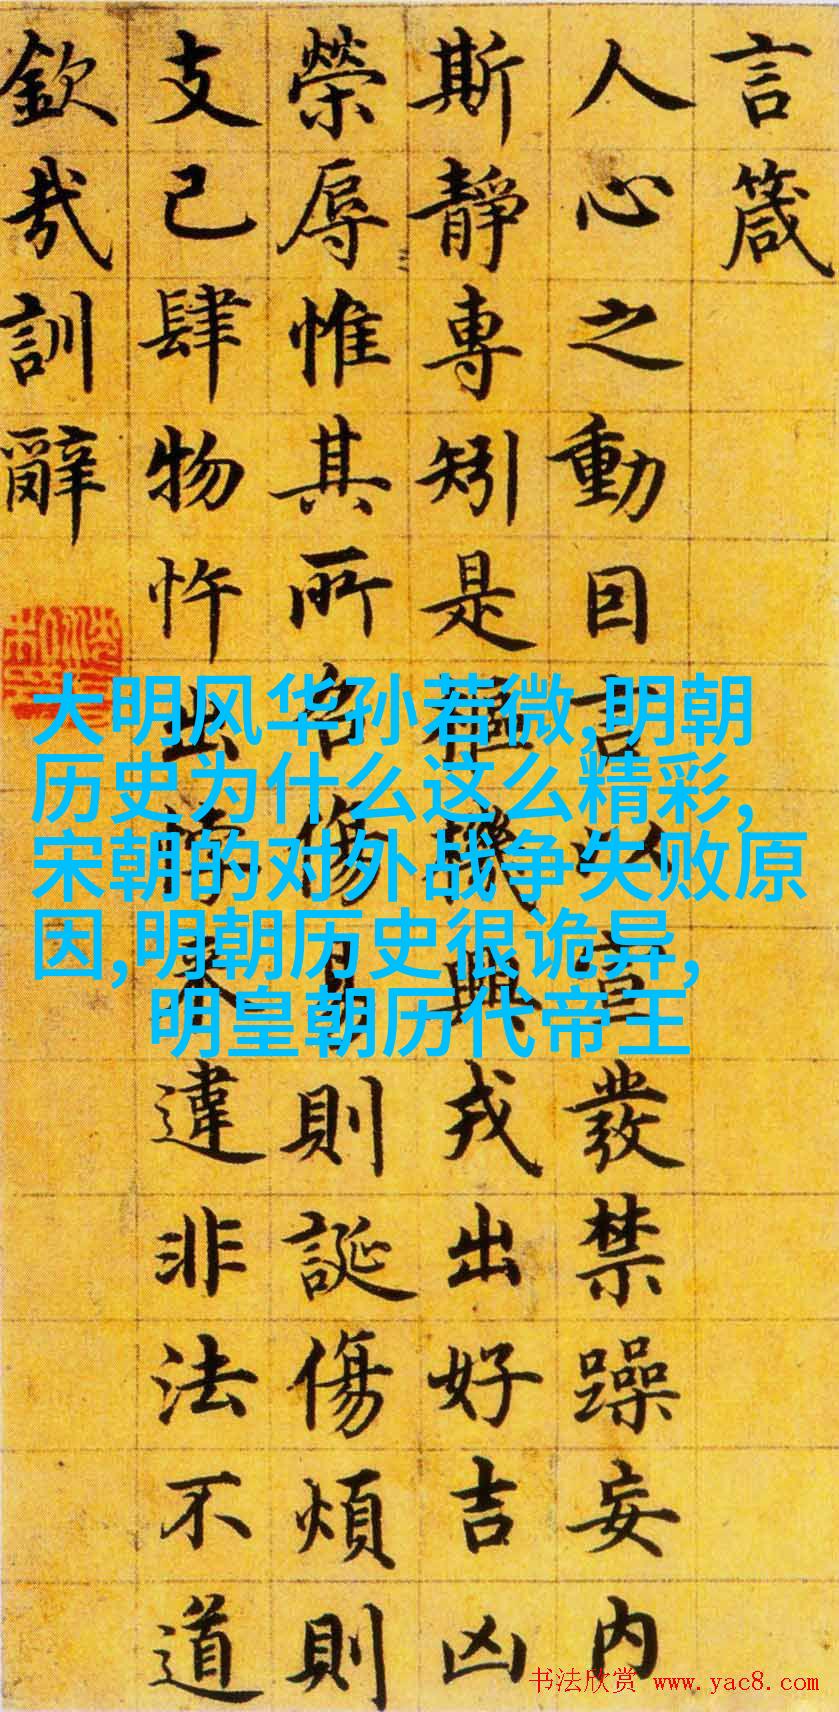 言箴
人心之動囙言以宣發禁躁妄内
斯靜專矧是樞機興戎出好吉凶
榮辱惟其所召傷易則誕傷煩則
支己肆物忤出悖来違非法不道
欽哉訓辭
大明风华孙若微,明朝
历史为什么这么精彩,
宋朝的对外战争失败原
因,明朝历史很诡异,
明皇朝历代帝王
书法欣赏 www.yac8.com